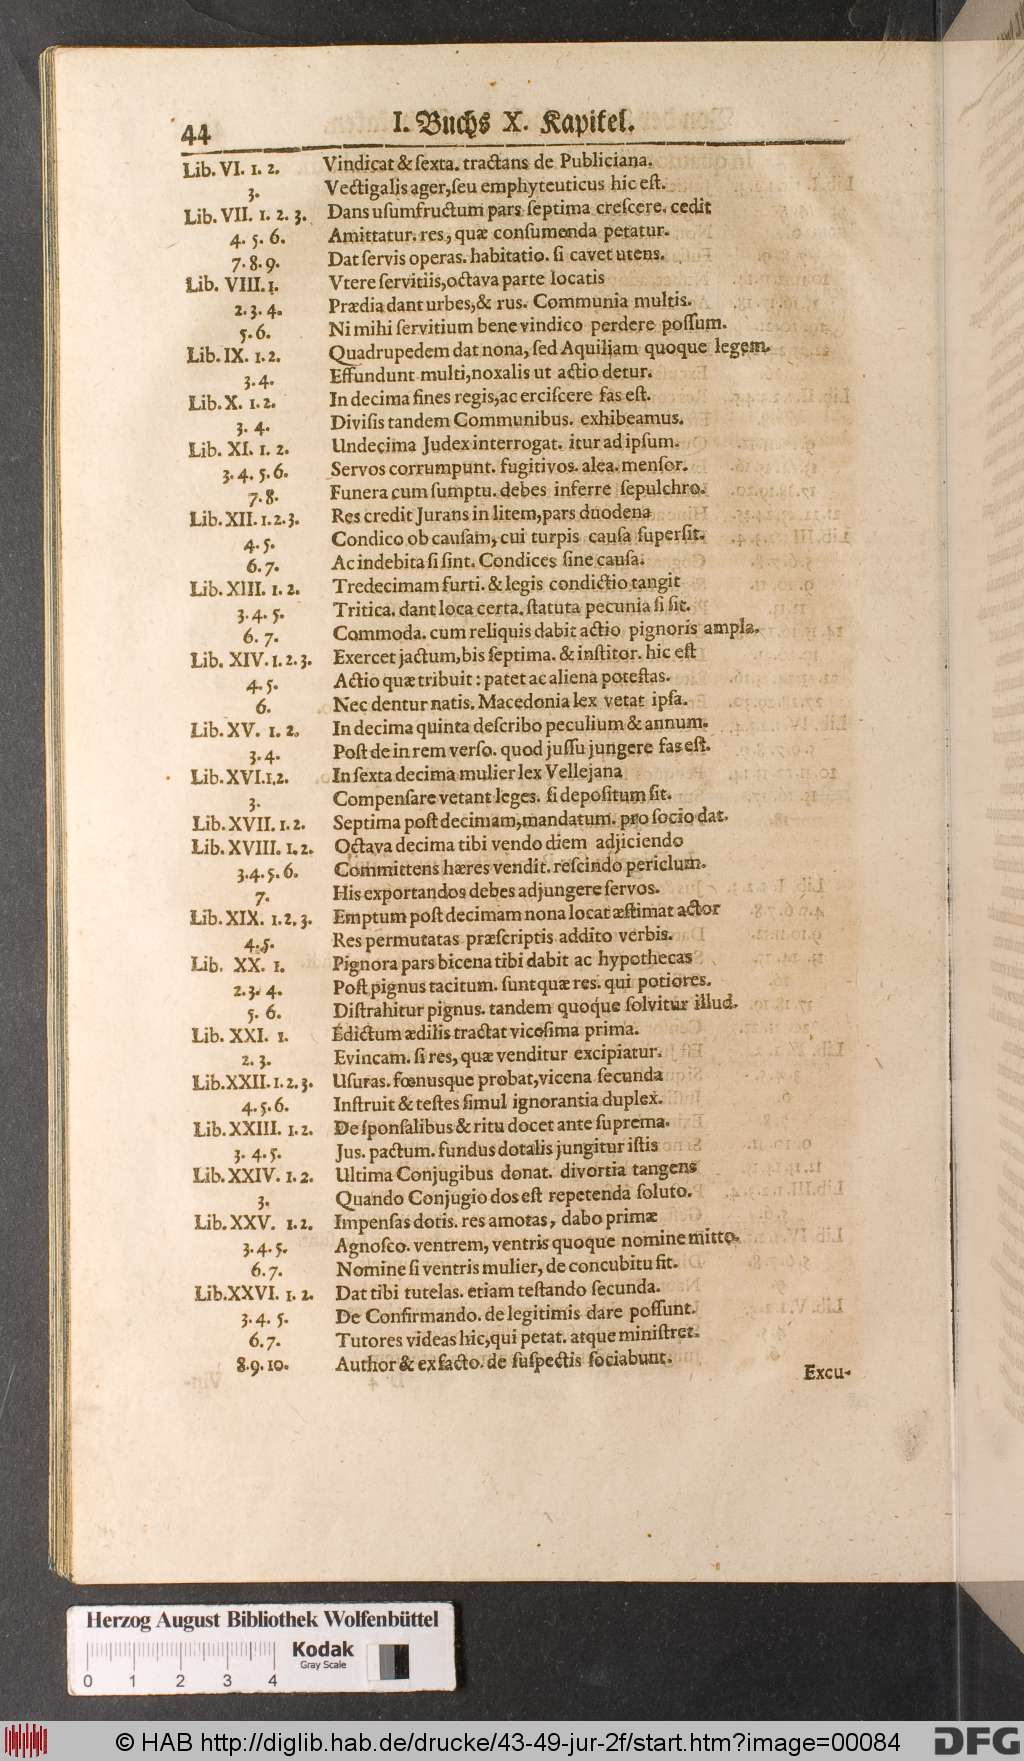 44 I. Buchs X. Kapitel.
Lib. VI. 1. 2. Vindicat & ſexta. tractans de Publiciana.
3. Vectigalis ager, ſeu emphyteuticus hic eſt.
Lib. VII. 1. 2. 3. Dans uſumfructum pars ſeptima creſcere. cedit
4. 5. 6. Amittatur. res, quæ conſumenda petatur.
7. 8. 9. Dat ſervis operas. habitatio. ſi cavet utens.
Lib. VIII. 1. Vtere ſervitiis, octava parte locatis
2. 3. 4. Prædia dant urbes, & rus. Communia multis.
5. 6. Ni mihi ſervitium bene vindico perdere poſſum.
Lib. IX. 1. 2. Quadrupedem dat nona, ſed Aquiliam quoque legem.
3. 4. Effundunt multi, noxalis ut actio detur.
Lib. X. 1. 2. In decima fines regis, ac erciſcere fas eſt.
3. 4. Diviſis tandem Communibus. exhibeamus.
Lib. XI. 1. 2. Undecima Judex interrogat. itur ad ipſum.
3. 4. 5. 6. Servos corrumpunt. fugitivos. alea. menſor.
7. 8. Funera cum ſumptu. debes inferre ſepulchro.
Lib. XII. 1. 2. 3. Res credit Jurans in litem, pars duodena
4. 5. Condico ob cauſam, cui turpis cauſa ſuperſit.
6. 7. Ac indebita ſi ſint. Condices ſine cauſa.
Lib. XIII. 1. 2. Tredecimam furti. & legis condictio tangit
3. 4. 5. Tritica. dant loca certa. ſtatuta pecunia ſi ſit.
6. 7. Commoda. cum reliquis dabit actio pignoris ampla.
Lib. XIV. 1. 2. 3. Exercet jactum, bis ſeptima. & inſtitor. hic eſt
4. 5. Actio quæ tribuit: patet ac aliena poteſtas.
6. Nec dentur natis. Macedonia lex vetat ipſa.
Lib. XV. 1. 2. In decima quinta deſcribo peculium & annum.
3. 4. Poſt de in rem verſo. quod juſſu jungere fas eſt.
Lib. XVI. 1. 2. In ſexta decima mulier lex Vellejana
3. Compenſare vetant leges. ſi depoſitum ſit.
Lib. XVII. 1. 2. Septima poſt decimam, mandatum. pro ſocio dat.
Lib. XVIII. 1. 2. Octava decima tibi vendo diem adjiciendo
3. 4. 5. 6. Committens hæres vendit. reſcindo periclum.
7. His exportandos debes adjungere ſervos.
Lib. XIX. 1. 2. 3. Emptum poſt decimam nona locat æſtimat actor
4. 5. Res permutatas præſcriptis addito verbis.
Lib. XX. 1. Pignora pars bicena tibi dabit ac hypothecas
2. 3. 4. Poſt pignus tacitum. ſunt quæ res. qui potiores.
5. 6. Diſtrahitur pignus. tandem quoque ſolvitur illud.
Lib. XXI. 1. Edictum ædilis tractat viceſima prima.
2. 3. Evincam. ſi res, quæ venditur excipiatur.
Lib. XXII. 1. 2. 3. Uſuras. fœnusque probat, vicena ſecunda
4. 5. 6. Inſtruit & teſtes ſimul ignorantia duplex.
Lib. XXIII. 1. 2. De ſponſalibus & ritu docet ante ſuprema.
3. 4. 5. Jus. pactum. fundus dotalis jungitur iſtis
Lib. XXIV. 1. 2. Ultima Conjugibus donat. divortia tangens
3. Quando Conjugio dos eſt repetenda ſoluto.
Lib. XXV. 1. 2. Impenſas dotis. res amotas, dabo primæ
3. 4. 5. Agnoſco. ventrem, ventris quoque nomine mitto.
6. 7. Nomine ſi ventris mulier, de concubitu ſit.
Lib. XXVI. 1. 2. Dat tibi tutelas. etiam teſtando ſecunda.
3. 4. 5. De Confirmando. de legitimis dare poſſunt.
6. 7. Tutores videas hic, qui petat. atque miniſtret.
8. 9. 10. Author & ex facto. de ſuſpectis ſociabunt.
Excu-
Herzog August Bibliothek Wolfenbüttel
Kodak
Gray Scale
0 1 2 3 4
© HAB http://diglib.hab.de/drucke/43-49-jur-2f/start.htm?image=00084
DFG